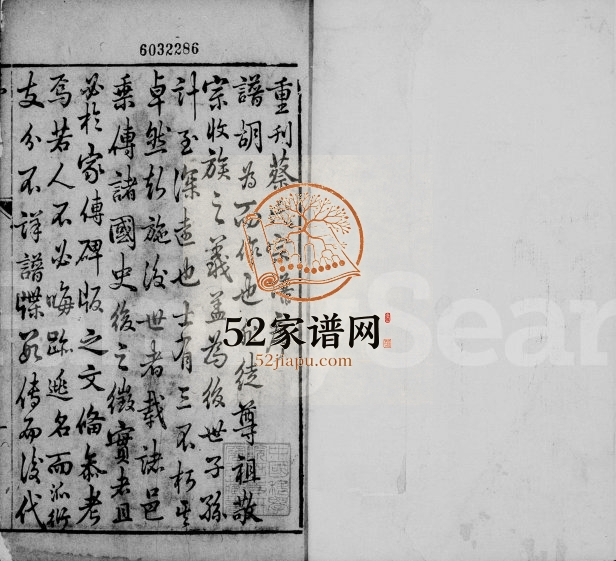 6032286
重刊蔡宗譜
譜胡為而作也徒尊祖敬
宗收族之義蓋為後世子孫
計至深遠也士有三不朽
卓然彰施後世者載諸邑
乘傳諸國史後之徵實者且
必於家傳碑版之文備參考
焉若人不必晦跡逃名而派衍
支分不詳譜牒數傳而後代
52家谱网
52jiapu.com
Sear